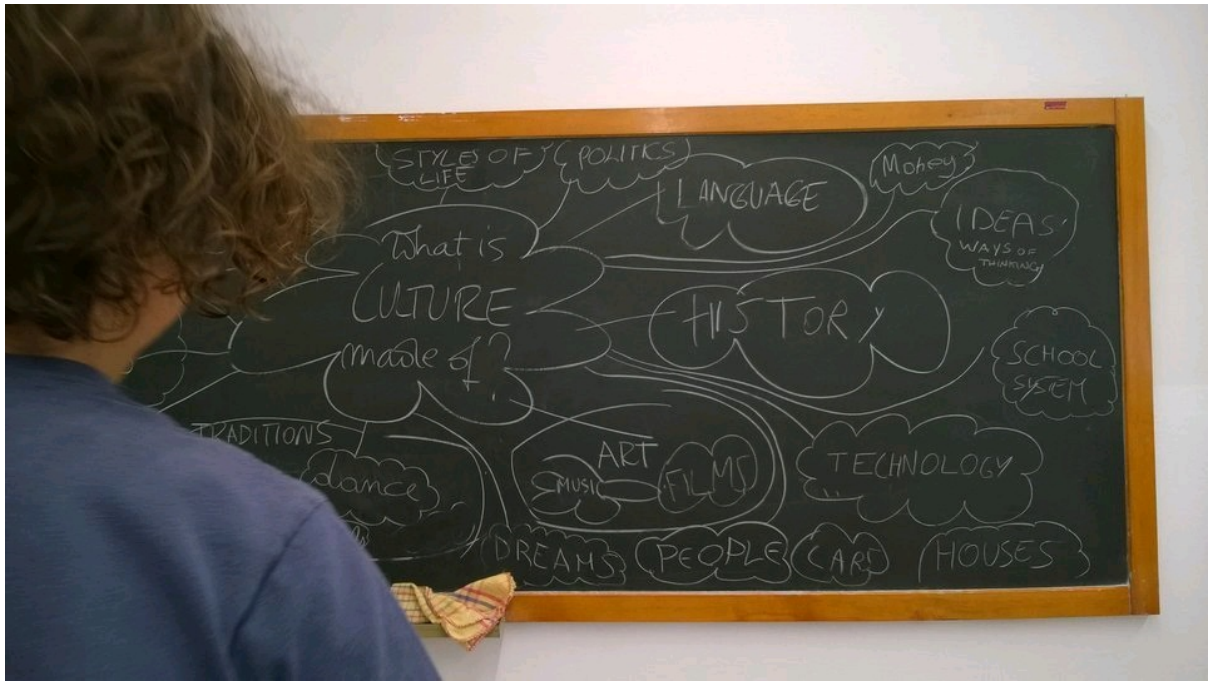 STYLES OF
LIFE
POLITICS
LANGUAGE
Money
IDEAS
WAYS OF
THINKING
What is
CULTURE
made of?
HISTORY
SCHOOL
SYSTEM
TRADITIONS
dance
ART
MUSIC
FILMS
TECHNOLOGY
DREAMS
PEOPLE
CARS
HOUSES